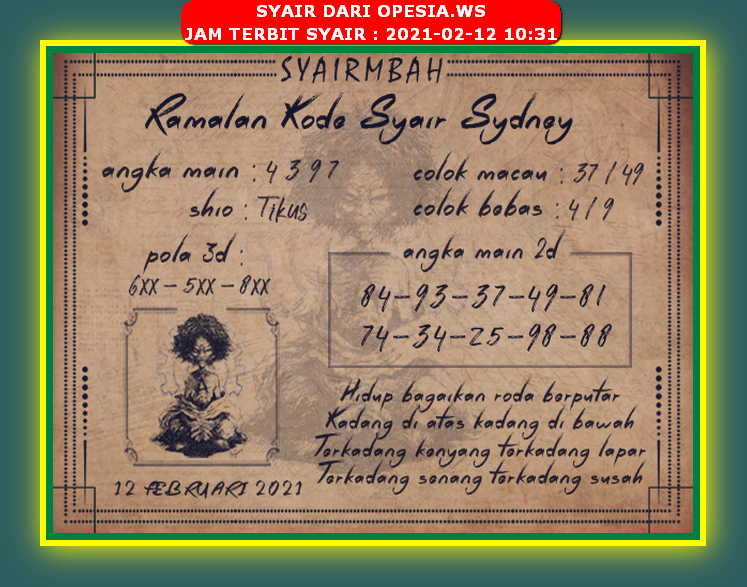 SYAIR DARI OPESIA.WS
JAM TERBIT SYAIR : 2021-02-12 10:31
SYAIRMBAH
Ramalan Kode Syair Sydney
angka main : 4 3 9 7
colok macau : 37 / 49
shio : Tikus
colok bebas : 4 / 9
pola 3d :
6XX - 5XX - 8XX
angka main 2d
84-93-37-49-81
74-34-25-98-88
Hidup bagaikan roda berputar
Kadang di atas kadang di bawah
Terkadang kenyang terkadang lapar
Terkadang senang terkadang susah
12 FEBRUARI 2021